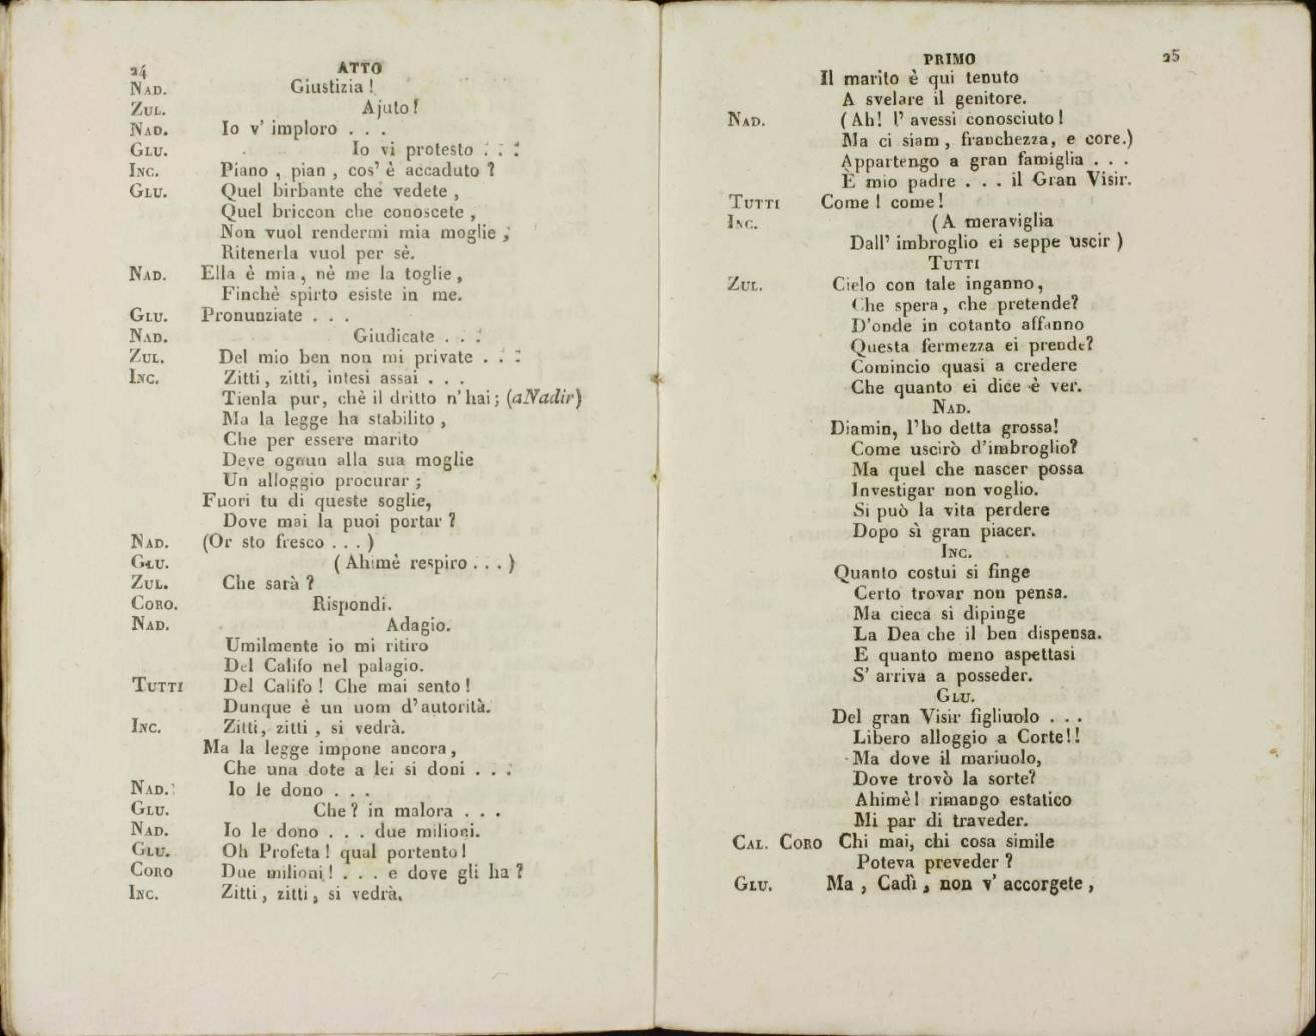 24 ATTO
NAD. Giustizia!
ZUL. Ajuto!
NAD. Io v' imploro . . .
GLU. Io vi protesto . . .
INC. Piano , pian , cos' è accaduto ?
GLU. Quel birbante che vedete ,
Quel briccon che conoscete ,
Non vuol rendermi mia moglie ,
Ritenerla vuol per sè.
NAD. Ella è mia, nè me la toglie,
Finchè spirto esiste in me.
GLU. Pronunziate . . .
NAD. Giudicate . . .
ZUL. Del mio ben non mi private . . .
INC. Zitti, zitti, intesi assai . . .
Tienla pur, chè il dritto n' hai; (a Nadir)
Ma la legge ha stabilito ,
Che per essere marito
Deve ognun alla sua moglie
Un alloggio procurar ;
Fuori tu di queste soglie,
Dove mai la puoi portar ?
NAD. (Or sto fresco . . . )
GLU. ( Ahimè respiro . . . )
ZUL. Che sarà ?
CORO. Rispondi.
NAD. Adagio.
Umilmente io mi ritiro
Del Califo nel palagio.
TUTTI Del Califo ! Che mai sento !
Dunque è un uom d' autorità.
INC. Zitti, zitti , si vedrà.
Ma la legge impone ancora ,
Che una dote a lei si doni . . .
NAD. Io le dono . . .
GLU. Che ? in malora . . .
NAD. Io le dono . . . due milioni.
GLU. Oh Profeta ! qual portento !
CORO Due milioni ! . . . e dove gli ha ?
INC. Zitti , zitti , si vedrà.
PRIMO 25
Il marito è qui tenuto
A svelare il genitore.
NAD. ( Ah! l' avessi conosciuto !
Ma ci siam , franchezza, e core.)
Appartengo a gran famiglia . . .
È mio padre . . . il Gran Visir.
TUTTI Come ! come !
INC. (A meraviglia
Dall' imbroglio ei seppe uscir )
TUTTI
ZUL. Cielo con tale inganno ,
Che spera , che pretende?
D'onde in cotanto affanno
Questa fermezza ei prende?
Comincio quasi a credere
Che quanto ei dice è ver.
NAD.
Diamin, l'ho detta grossa!
Come uscirò d'imbroglio?
Ma quel che nascer possa
Investigar non voglio.
Si può la vita perdere
Dopo sì gran piacer.
INC.
Quanto costui si finge
Certo trovar non pensa.
Ma cieca si dipinge
La Dea che il ben dispensa.
E quanto meno aspettasi
S' arriva a posseder.
GLU.
Del gran Visir figliuolo . . .
Libero alloggio a Corte!!
Ma dove il mariuolo,
Dove trovò la sorte?
Ahimè! rimango estatico
Mi par di traveder.
CAL. CORO Chi mai, chi cosa simile
Poteva preveder ?
GLU. Ma , Cadì , non v' accorgete ,